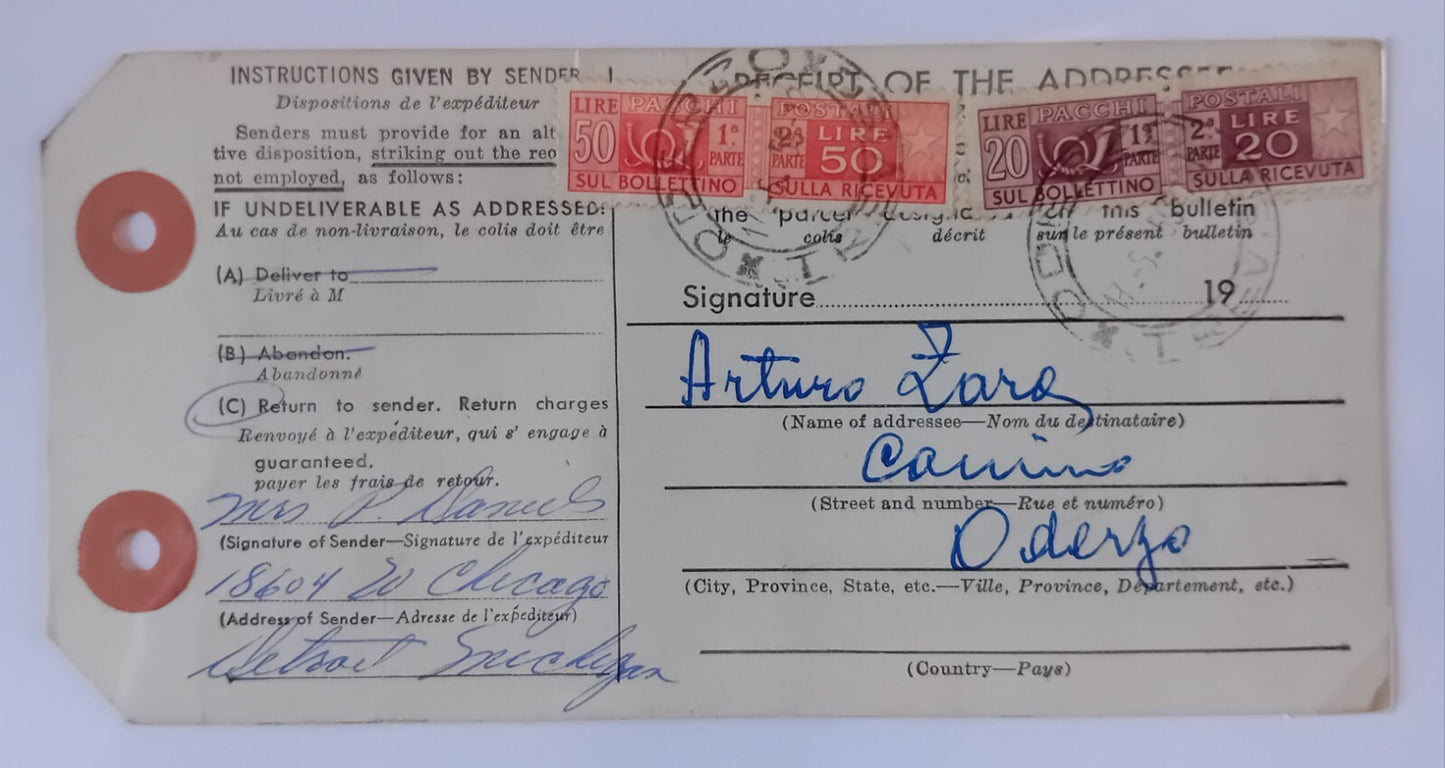 INSTRUCTIONS GIVEN BY SENDER
Dispositions de l'expéditeur
Senders must provide for an alt
tive disposition, striking out the
not employed, as follows:
IF UNDELIVERABLE AS ADDRESSED:
Au cas de non-livraison, le colis doit être
(A) Deliver to
Livré à M
(B) Abandon.
Abandonné
(C) Return to sender. Return charges
Renvoyé à l'expéditeur, qui s' engage à
guaranteed.
payer les frais de retour.
Mrs P. Daniels
(Signature of Sender—Signature de l'expéditeur
18604 W Chicago
(Address of Sender—Adresse de l'expéditeur)
Detroit Michigan
RECEIPT OF THE ADDRESSEE
LIRE PACCHI POSTALI
50 1ª PARTE 2ª PARTE LIRE 50
SUL BOLLETTINO SULLA RICEVUTA
LIRE PACCHI POSTALI
20 1ª PARTE 2ª PARTE LIRE 20
SUL BOLLETTINO SULLA RICEVUTA
ODERZO
TREVISO
the parcel on this bulletin
le colis décrit sur le présent bulletin
Signature 19
Arturo Zara
(Name of addressee—Nom du destinataire)
Camino
(Street and number—Rue et numéro)
Oderzo
(City, Province, State, etc.—Ville, Province, Département, etc.)
(Country—Pays)